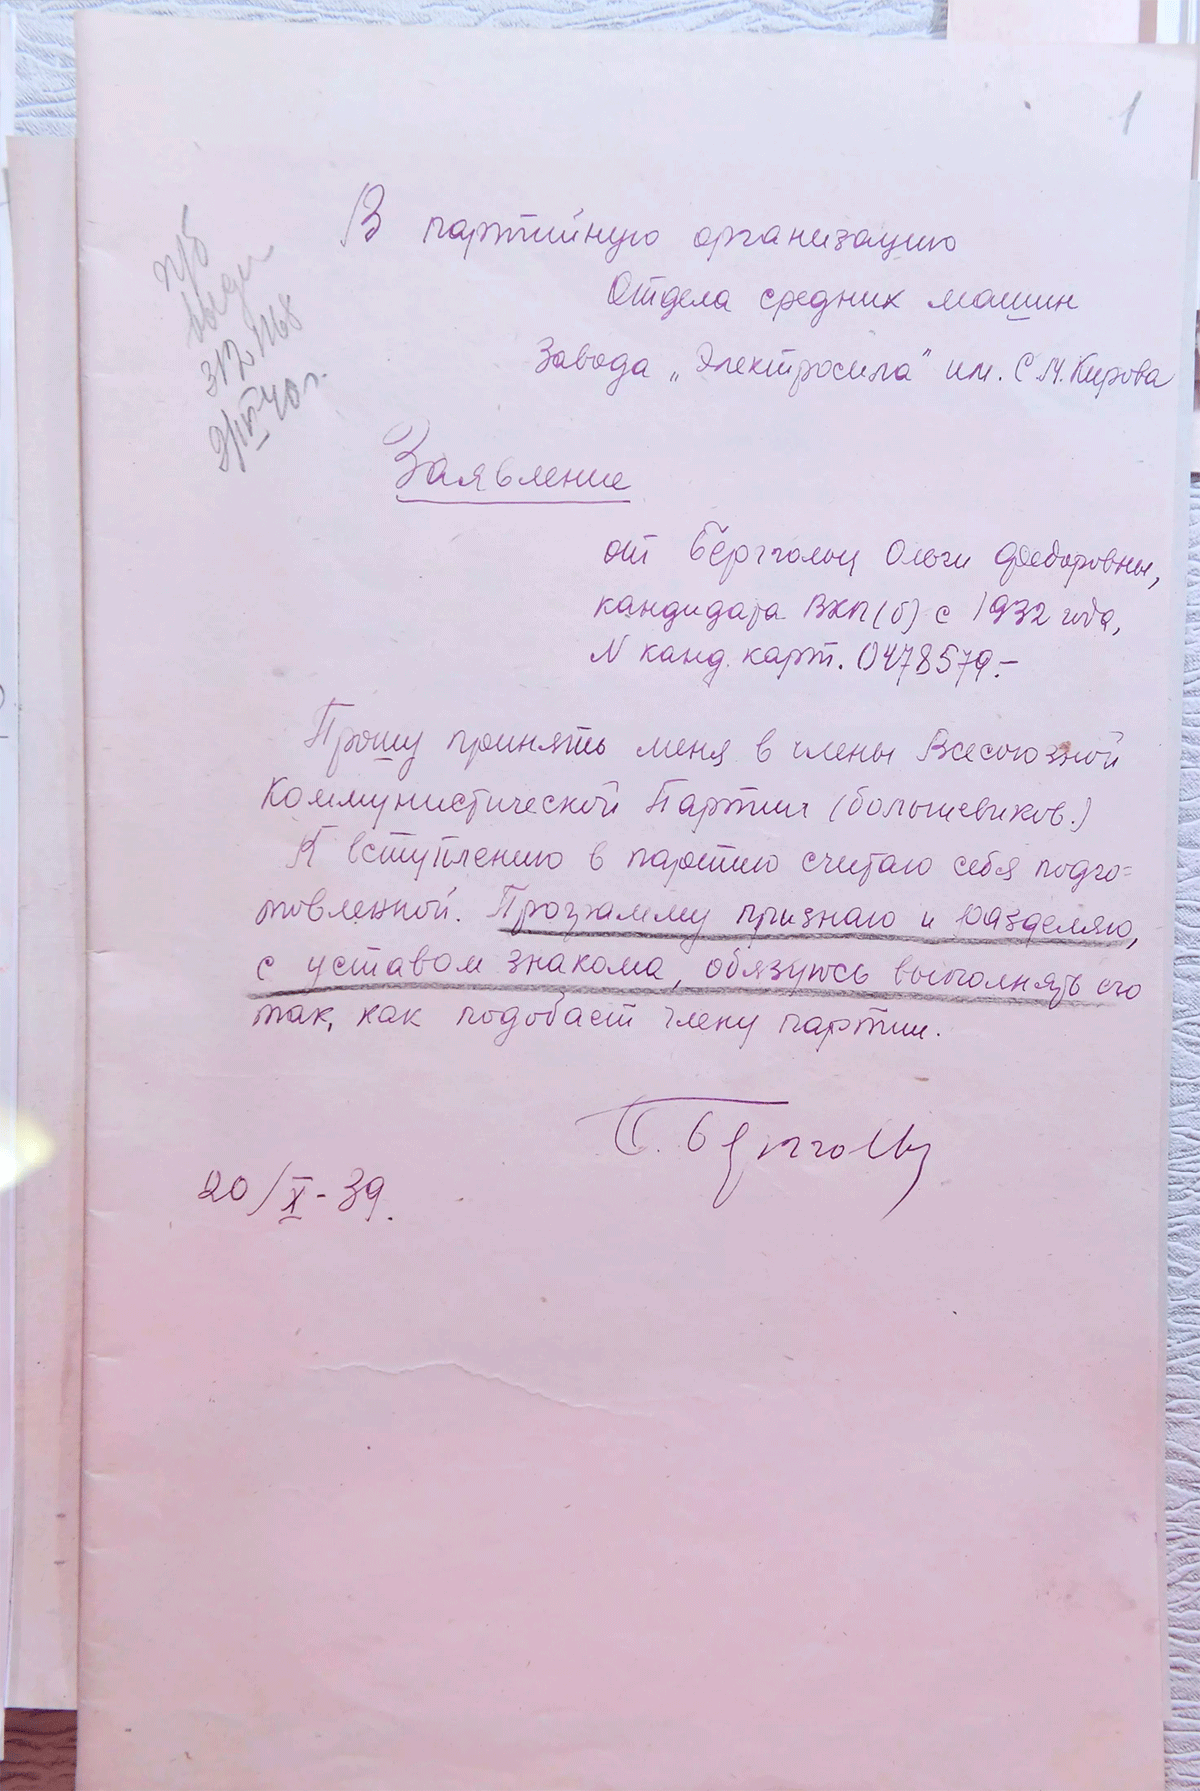 1
В партийную организацию
Отдела средних машин
Завода „Электросила" им. С.М. Кирова
п/б
312 1168
Заявление
от Берггольц Ольги Федоровны,
кандидата ВКП(б) с 1932 года,
N канд. карт. 0478579.—
Прошу принять меня в члены Всесоюзной
Коммунистической Партии (большевиков.)
К вступлению в партию считаю себя подго=
товленной. Программу признаю и разделяю,
с уставом знакома, обязуюсь выполнять его
так, как подобает члену партии.
О. Берггольц
20/X-39.